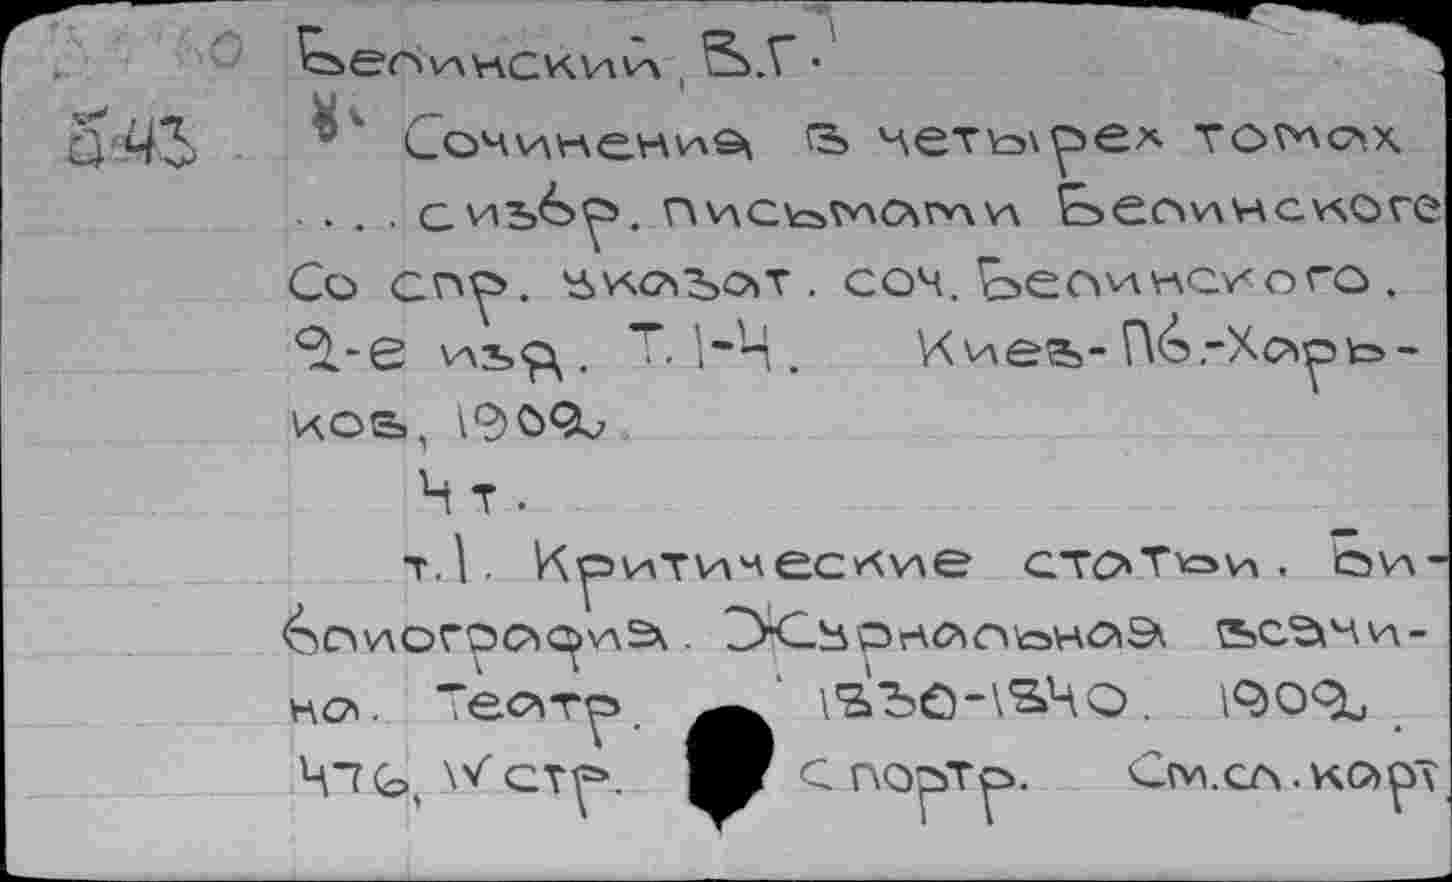 Белинский, В.Г.
Сочинения в четырех томах
.... с избр. письмами Белинского
Со спр. указат. соч. Белинского.
2-е изд. Т.1-4. Киев-Пб.-Харь-
ков, 1902
4 т.
т.1. Критические статьи. Би-
блиография. Журнальная всячи-
на. Театр. 1830-1840. 1902
476, IV стр. с портр. См.сл.карт